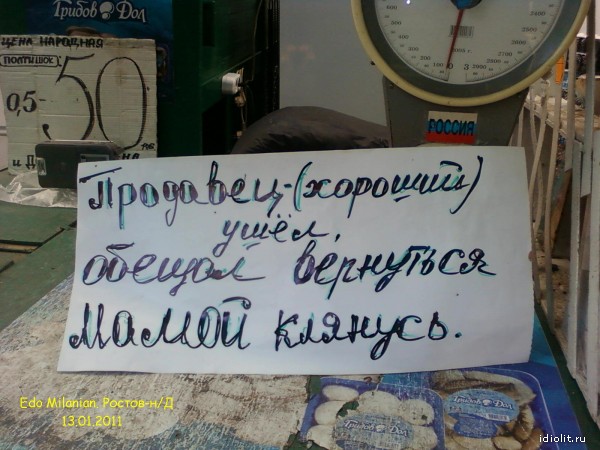 Грибов Дол
ЦЕНА НАРОДНАЯ
ПОЛТИШОК
0,5-50
РОССИЯ
Продавец-(хороший)
ушёл,
обещал вернуться
Мамой клянусь.
Грибов Дол
Edo Milanian. Ростов-н/Д
13.01.2011
idiolit.ru